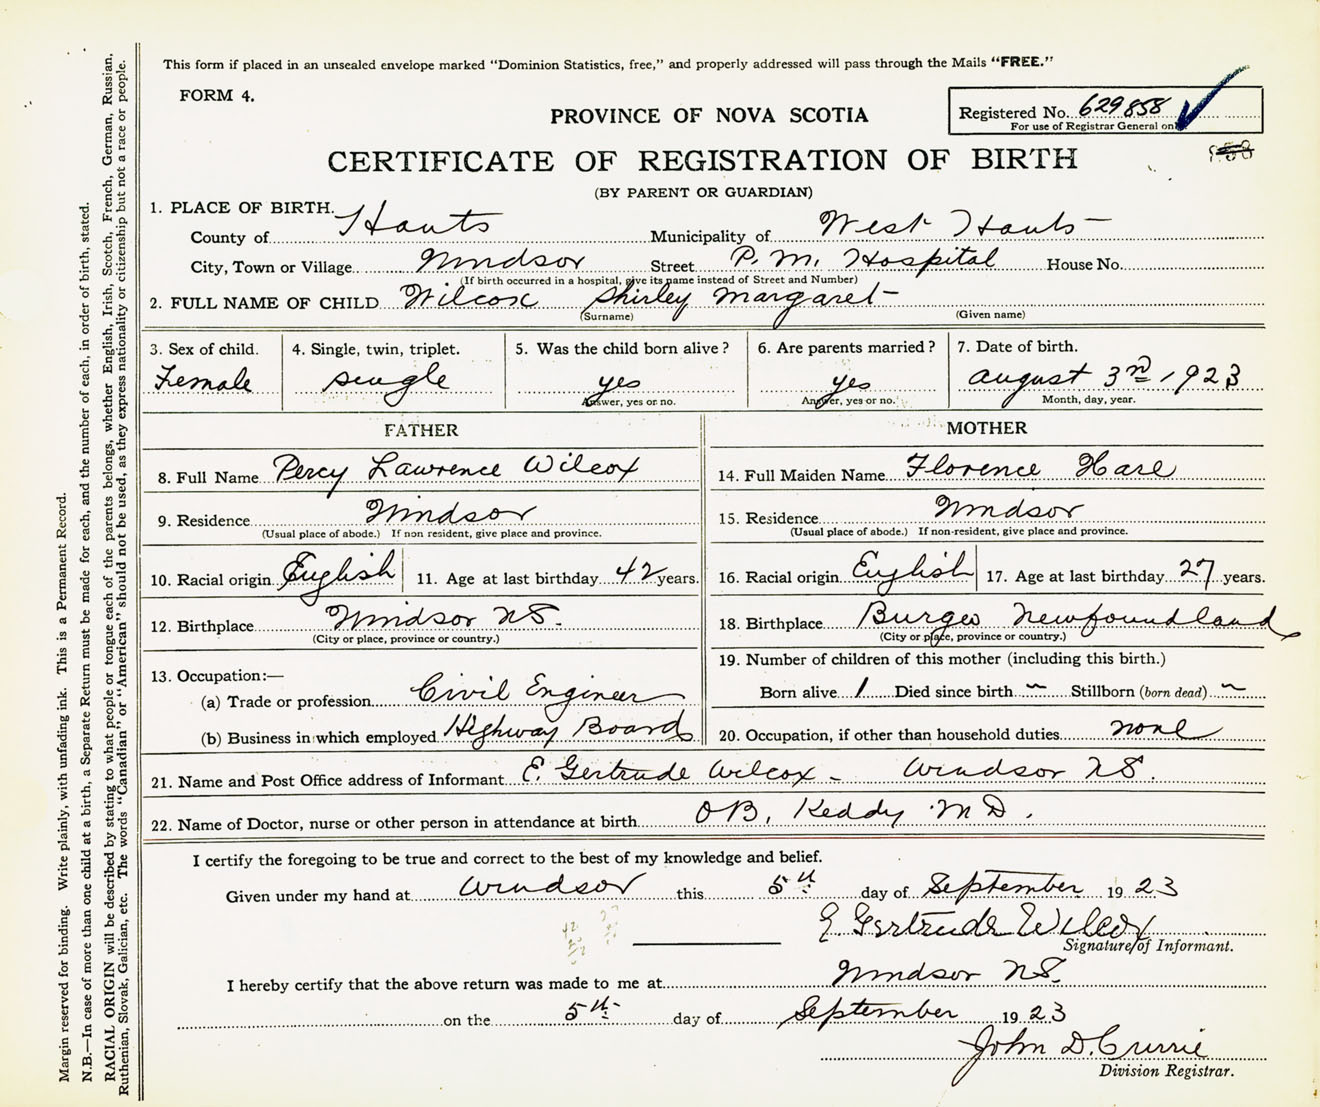 This form if placed in an unsealed envelope marked "Dominion Statistics, free," and properly addressed will pass through the Mails "FREE."
FORM 4.
PROVINCE OF NOVA SCOTIA
Registered No. 629858
For use of Registrar General only.
CERTIFICATE OF REGISTRATION OF BIRTH
(BY PARENT OR GUARDIAN)
1. PLACE OF BIRTH.
County of Hants Municipality of West Hants
City, Town or Village Windsor Street P. M. Hospital House No.
(If birth occurred in a hospital, give its name instead of Street and Number)
2. FULL NAME OF CHILD Wilcox Shirley Margaret
(Surname) (Given name)
3. Sex of child. 4. Single, twin, triplet. 5. Was the child born alive? 6. Are parents married? 7. Date of birth.
Female single yes yes august 3rd, 1923
Answer, yes or no. Answer, yes or no. Month, day, year.
FATHER
8. Full Name Percy Lawrence Wilcox
9. Residence Windsor
(Usual place of abode.) If non resident, give place and province.
10. Racial origin English 11. Age at last birthday 42 years.
12. Birthplace Windsor N.S.
(City or place, province or country.)
13. Occupation:—
(a) Trade or profession Civil Engineer
(b) Business in which employed Highway Board
MOTHER
14. Full Maiden Name Florence Hare
15. Residence Windsor
(Usual place of abode.) If non-resident, give place and province.
16. Racial origin English 17. Age at last birthday 27 years.
18. Birthplace Burgeo Newfoundland
(City or place, province or country.)
19. Number of children of this mother (including this birth.)
Born alive 1 Died since birth ~ Stillborn (born dead) ~
20. Occupation, if other than household duties none
21. Name and Post Office address of Informant E. Gertrude Wilcox - Windsor N.S.
22. Name of Doctor, nurse or other person in attendance at birth O B. Keddy M D.
I certify the foregoing to be true and correct to the best of my knowledge and belief.
Given under my hand at Windsor this 5th day of September 1923
E Gertrude Wilcox
Signature of Informant.
I hereby certify that the above return was made to me at Windsor N.S.
on the 5th day of September 1923
John D. Currie
Division Registrar.
Margin reserved for binding. Write plainly, with unfading ink. This is a Permanent Record.
N.B.—In case of more than one child at a birth, a Separate Return must be made for each, and the number of each, in order of birth, stated.
RACIAL ORIGIN will be described by stating to what people or tongue each of the parents belongs, whether English, Irish, Scotch, French, German, Russian,
Ruthenian, Slovak, Galician, etc. The words "Canadian" or "American" should not be used, as they express nationality or citizenship but not a race or people.